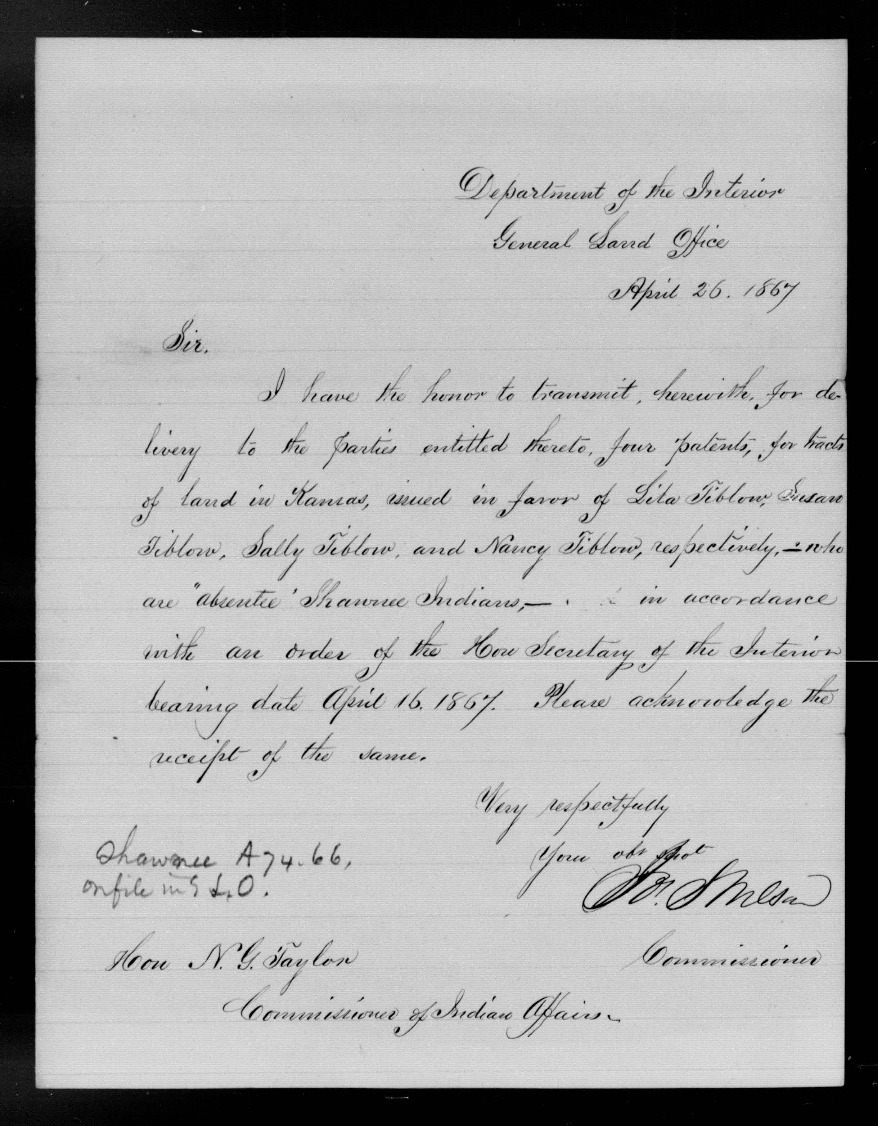 Department of the Interior
General Land Office
April 26. 1867
Sir.
I have the honor to transmit, herewith, for de-
livery to the parties entitled thereto, four patents, for tracts
of land in Kansas, issued in favor of Lila Tiblow, Susan
Tiblow, Sally Tiblow, and Nancy Tiblow, respectively, – who
are "absentee" Shawnee Indians, – in accordance
with an order of the Hon Secretary of the Interior
bearing date April 16. 1867. Please acknowledge the
receipt of the same.
Very respectfully
Your obt Svt
Jos. S Wilson
Commissioner
Shawnee A 74.66,
on file in G L.O.
Hon N. G. Taylor
Commissioner of Indian Affairs.